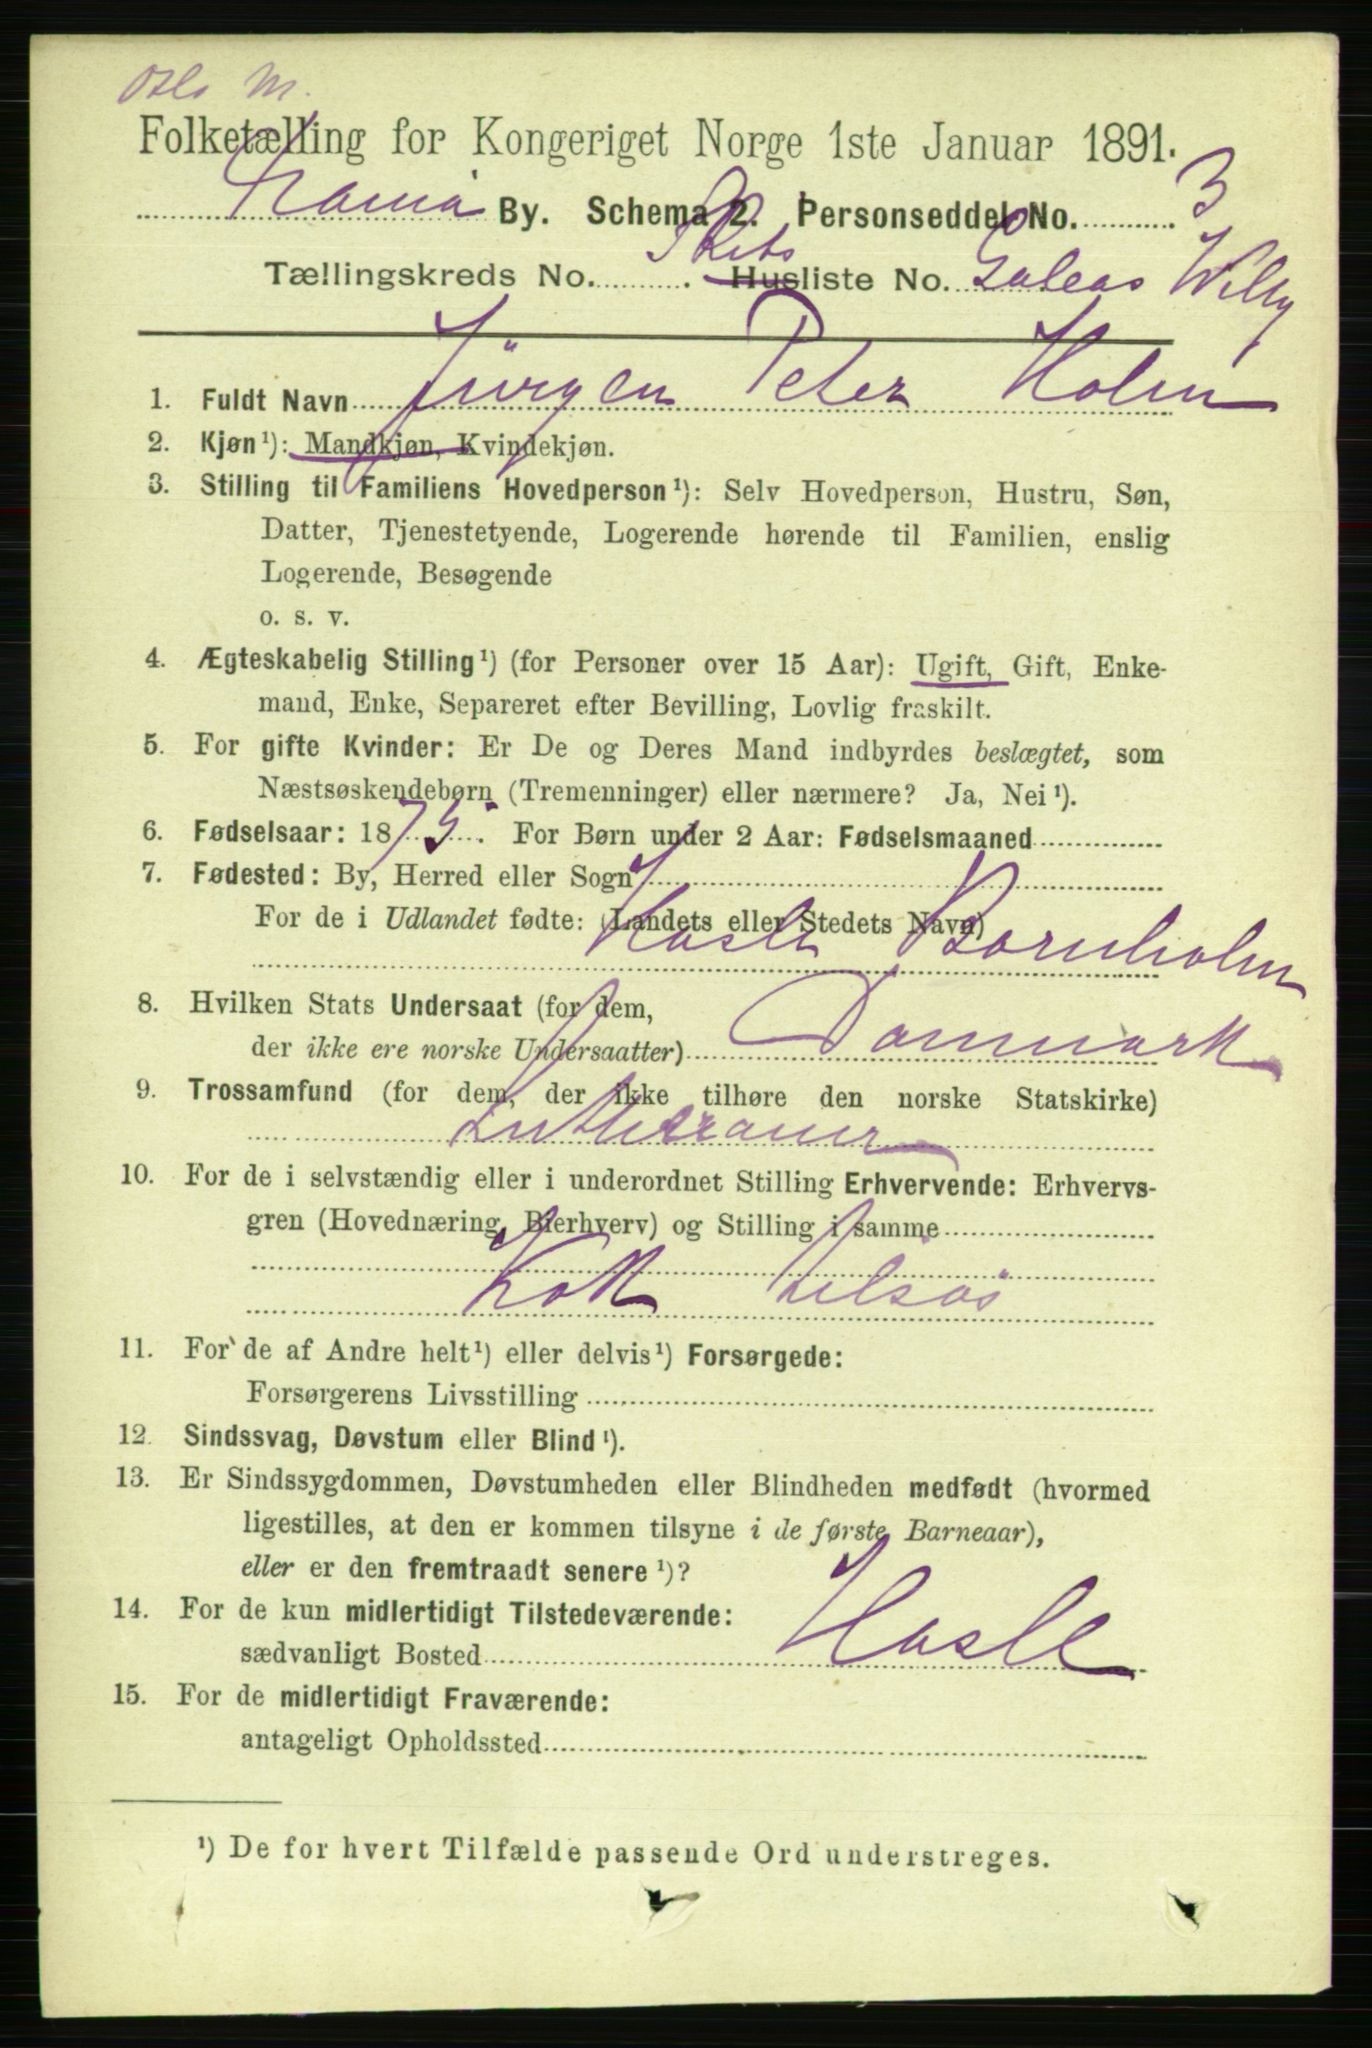 Oslo M.
Folketælling for Kongeriget Norge 1ste Januar 1891.
By. Schema 2. Personseddel No. 3
Tællingskreds No. Skibs Husliste No. Galeas Willy
1. Fuldt Navn Jürgen Peter Holm
2. Kjøn¹): Mandkjøn, Kvindekjøn.
3. Stilling til Familiens Hovedperson¹): Selv Hovedperson, Hustru, Søn,
Datter, Tjenestetyende, Logerende hørende til Familien, enslig
Logerende, Besøgende
o. s. v.
4. Ægteskabelig Stilling¹) (for Personer over 15 Aar): Ugift, Gift, Enke-
mand, Enke, Separeret efter Bevilling, Lovlig fraskilt.
5. For gifte Kvinder: Er De og Deres Mand indbyrdes beslægtet, som
Næstsøskendebørn (Tremenninger) eller nærmere? Ja, Nei¹).
6. Fødselsaar: 1875. For Børn under 2 Aar: Fødselsmaaned
7. Fødested: By, Herred eller Sogn
For de i Udlandet fødte: (Landets eller Stedets Navn)
Hasle Bornholm
8. Hvilken Stats Undersaat (for dem,
der ikke ere norske Undersaatter) Danmark
9. Trossamfund (for dem, der ikke tilhøre den norske Statskirke)
Lutheraner
10. For de i selvstændig eller i underordnet Stilling Erhvervende: Erhvervs-
gren (Hovednæring, Bierhverv) og Stilling i samme
Kok
11. For de af Andre helt¹) eller delvis¹) Forsørgede:
Forsørgerens Livsstilling
12. Sindssvag, Døvstum eller Blind¹).
13. Er Sindssygdommen, Døvstumheden eller Blindheden medfødt (hvormed
ligestilles, at den er kommen tilsyne i de første Barneaar),
eller er den fremtraadt senere¹)?
14. For de kun midlertidigt Tilstedeværende:
sædvanligt Bosted Hasle
15. For de midlertidigt Fraværende:
antageligt Opholdssted
¹) De for hvert Tilfælde passende Ord understreges.